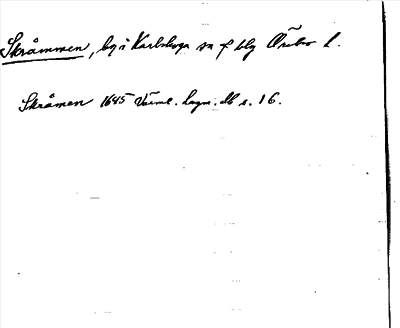 Skråmmen, by i Karlskoga sn o f bsg Örebro l.
Skråmen 1645 Värml. Lagm. db s. 16.